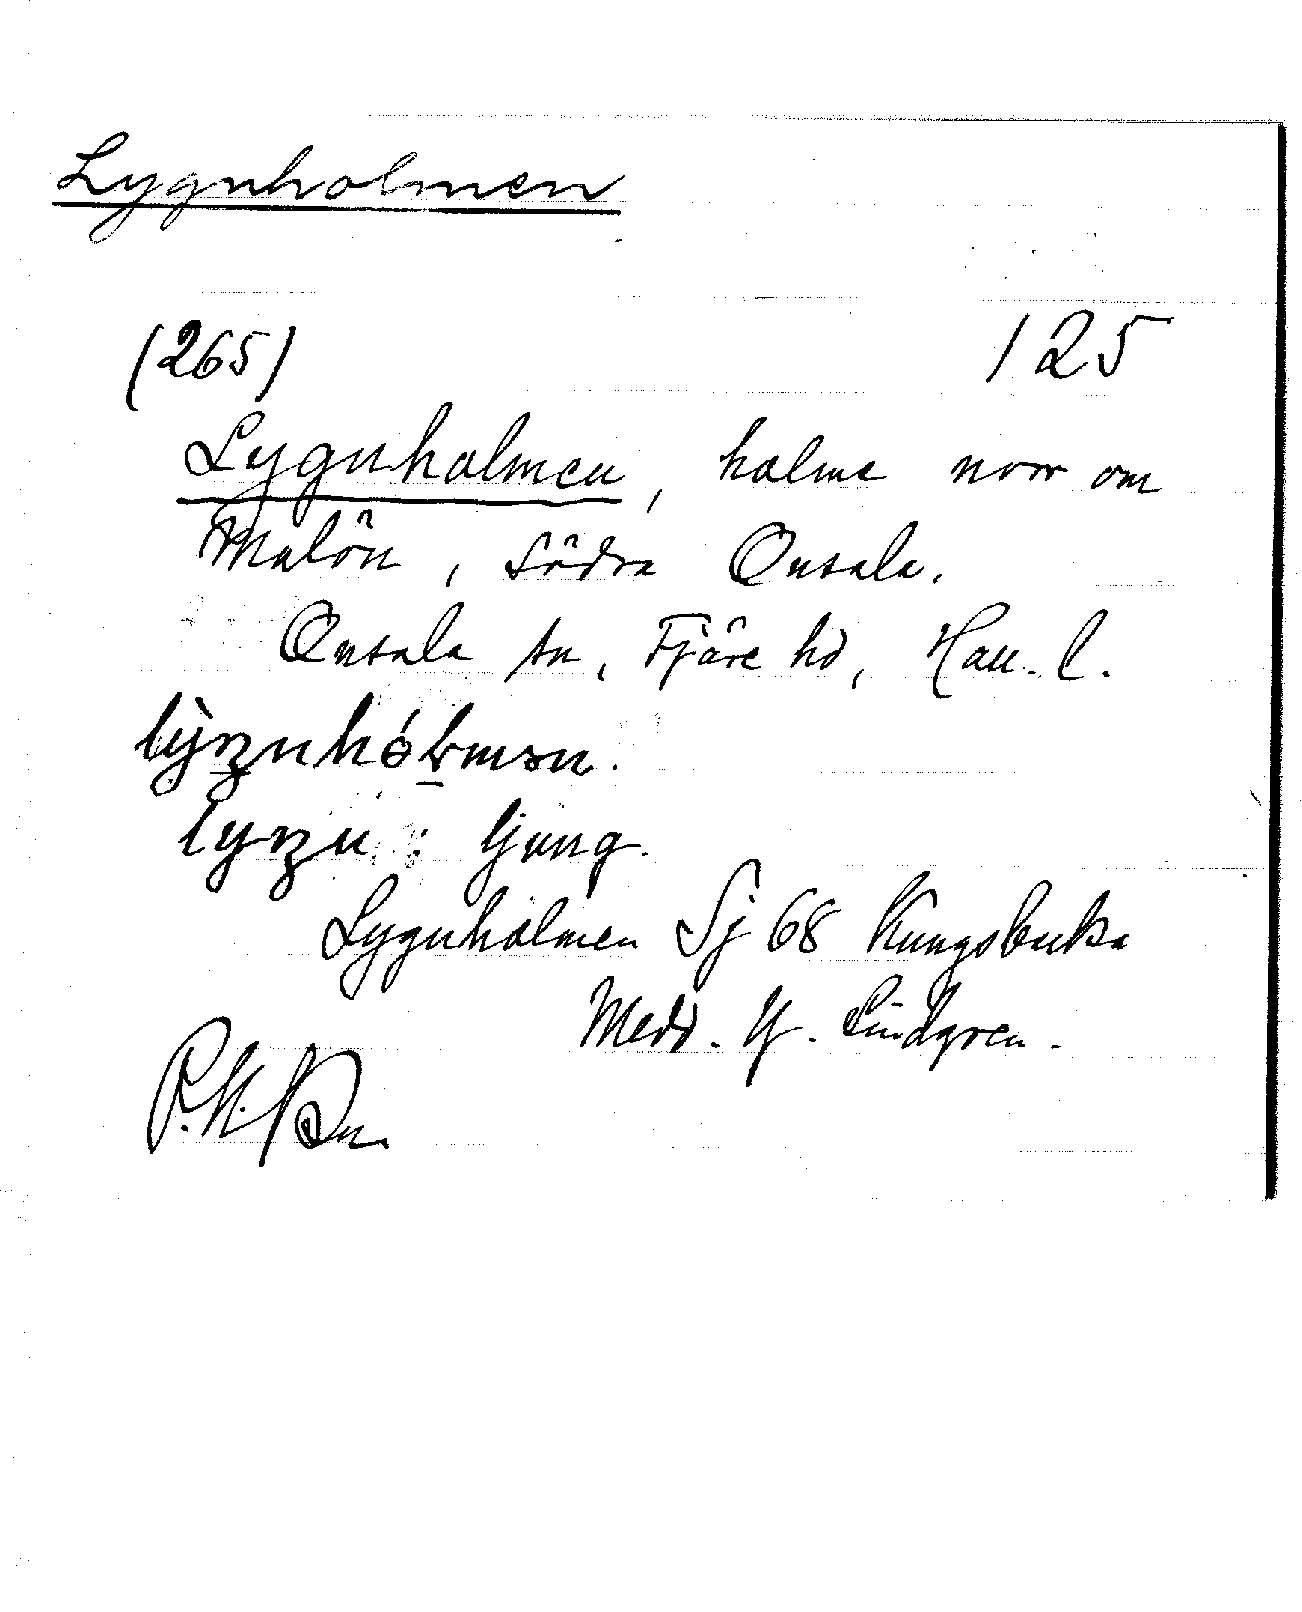 Lygnholmen
(265) 125
Lygnholmen, holme norr om
Malön, Södra Onsala.
Onsala sn, Fjäre hd, Hall. l.
lỳ̖ŋnhól̠mən.
lyŋn : ljung.
Lygnholmen Sj 68 Kungsbacka
Medd. Y. Lindgren.